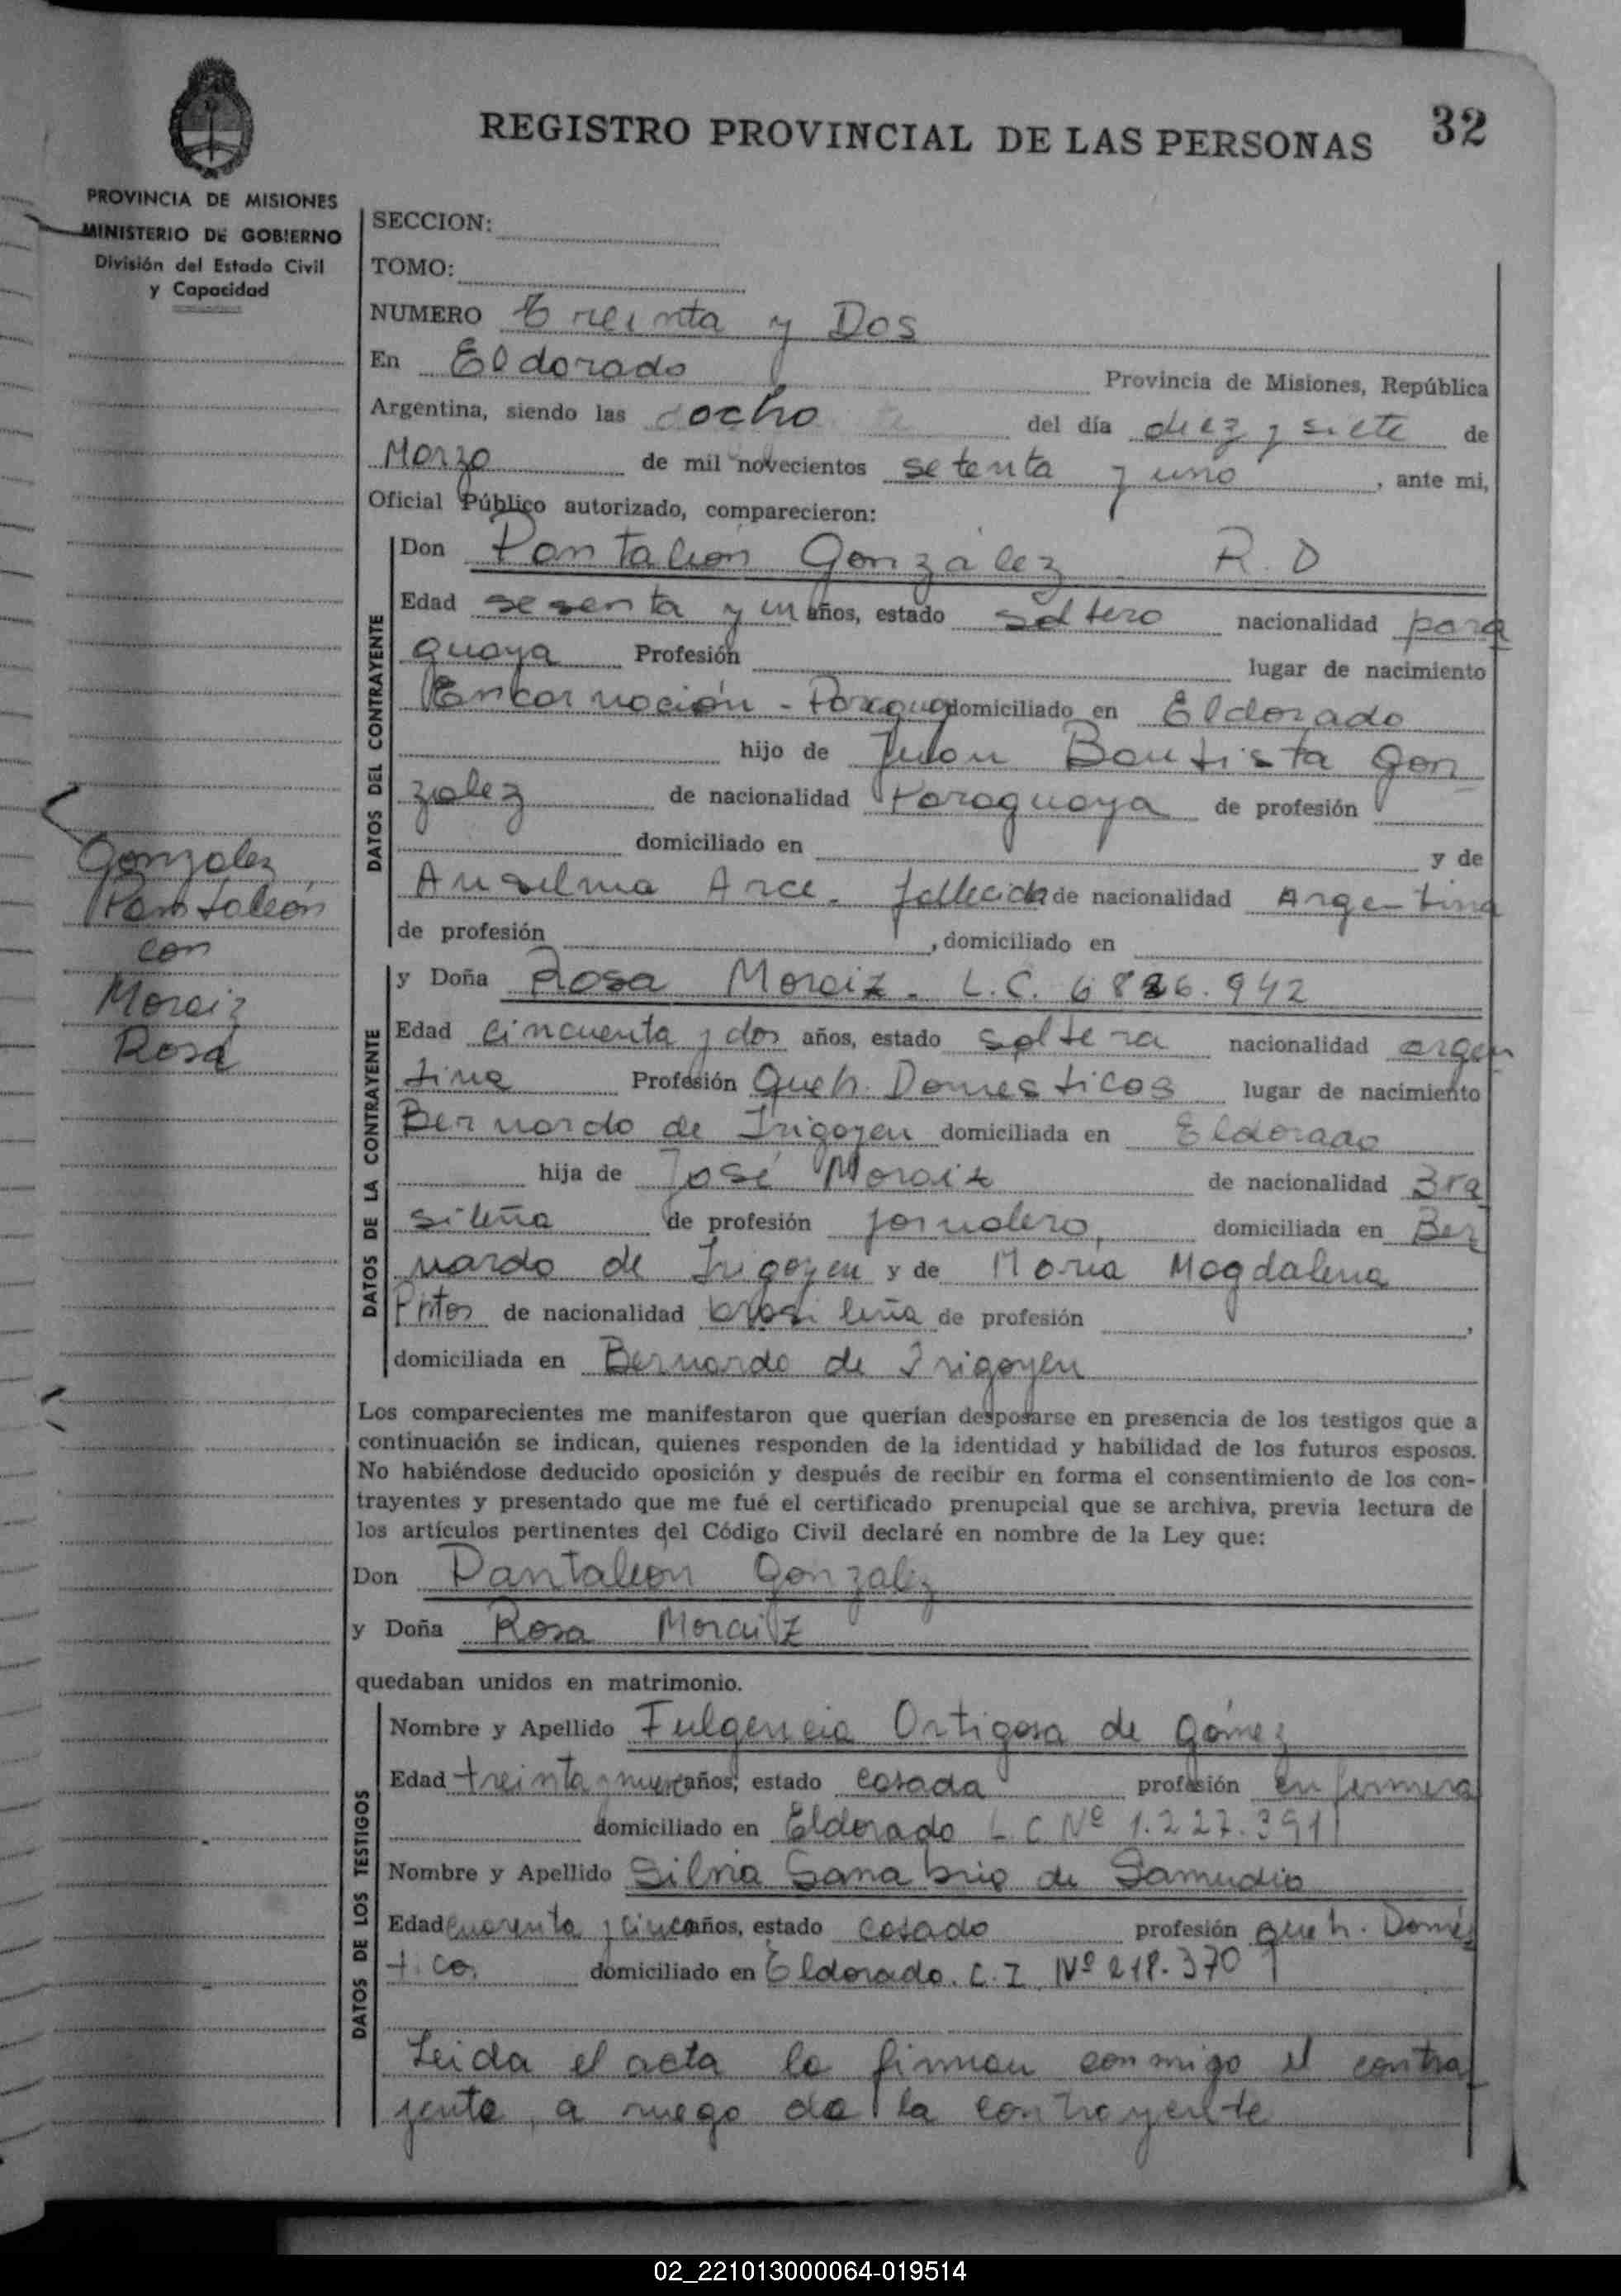 REGISTRO PROVINCIAL DE LAS PERSONAS 32
PROVINCIA DE MISIONES
MINISTERIO DE GOBIERNO
División del Estado Civil
y Capacidad
SECCION:
TOMO:
NUMERO Treinta y Dos
En Eldorado Provincia de Misiones, República
Argentina, siendo las ocho del día diez y siete de
Marzo de mil novecientos setenta y uno, ante mi,
Oficial Público autorizado, comparecieron:
DATOS DEL CONTRAYENTE
Don Pantaleón González R.D
Edad sesenta y un años, estado soltero nacionalidad para
guaya Profesión lugar de nacimiento
Encarnación - Paraguay domiciliado en Eldorado
hijo de Juan Bautista Gon
zalez de nacionalidad Paraguaya de profesión
domiciliado en y de
Anselma Arce. fallecida de nacionalidad Argentina
de profesión , domiciliado en
Gonzalez
Pantaleón
con
Moraiz
Rosa
DATOS DE LA CONTRAYENTE
y Doña Rosa Moraiz. L.C. 6.942
Edad cincuenta y dos años, estado soltera nacionalidad argen
tina Profesión Queh. Domesticos lugar de nacimiento
Bernardo de Irigoyen domiciliada en Eldorado
hija de José Moraiz de nacionalidad Bra
sileña de profesión jornalero, domiciliada en Ber
nardo de Irigoyen y de Maria Magdalena
de nacionalidad brasileña de profesión ,
domiciliada en Bernardo de Irigoyen
Los comparecientes me manifestaron que querían desposarse en presencia de los testigos que a
continuación se indican, quienes responden de la identidad y habilidad de los futuros esposos.
No habiéndose deducido oposición y después de recibir en forma el consentimiento de los con-
trayentes y presentado que me fué el certificado prenupcial que se archiva, previa lectura de
los artículos pertinentes del Código Civil declaré en nombre de la Ley que:
Don Pantaleon Gonzalez
y Doña Rosa Moraiz
quedaban unidos en matrimonio.
DATOS DE LOS TESTIGOS
Nombre y Apellido Fulgencia Ortigosa de Gómez
Edad treinta y nueve años, estado casada profesión enfermera
domiciliado en Eldorado L.C. Nº 1.227.391
Nombre y Apellido Silvia Sanabria de Samudio
Edad cuarenta y cinco años, estado casado profesión queh. Domés
tico. domiciliado en Eldorado. C.I. Nº 218.370
Leida el acta la firman conmigo el contra
yente, a ruego de la contrayente
02_221013000064-019514